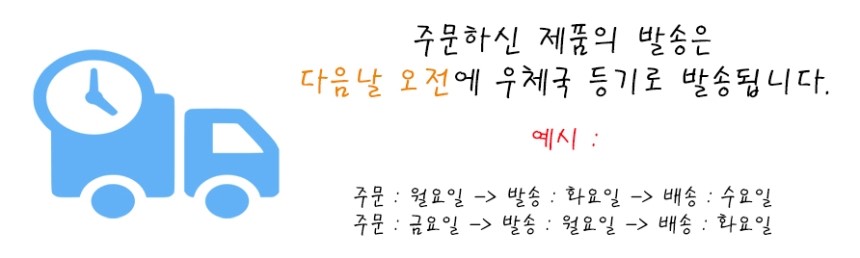 주문하신 제품의 발송은
다음날 오전에 우체국 등기로 발송됩니다.
예시 :
주문 : 월요일 -> 발송 : 화요일 -> 배송 : 수요일
주문 : 금요일 -> 발송 : 월요일 -> 배송 : 화요일